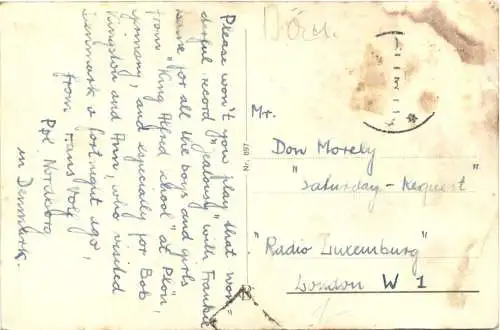 Please won't you play that won=
derful record "Jealousy" with Frankie
Laine for all the boys and girls
from "King Alfred school" at Plön,
Germany, and especially for Bob
Kingston and Ann, who visited
Denmark a fortnight ago,
from
Pbl. Nordborg
in Denmark.
Mr.
Don Morely
"Saturday-Request"
"Radio Luxemburg"
London W 1
N. 897